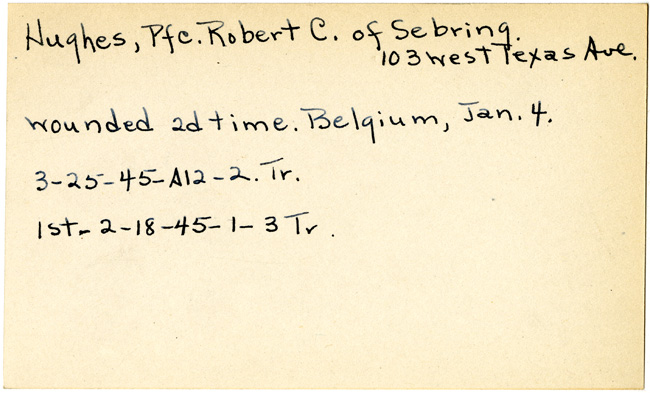 Hughes, Pfc. Robert C. of Sebring.
103 west Texas Ave.
wounded 2d time. Belgium, Jan. 4.
3-25-45-A12-2. Tr.
1st- 2-18-45-1-3 Tr.